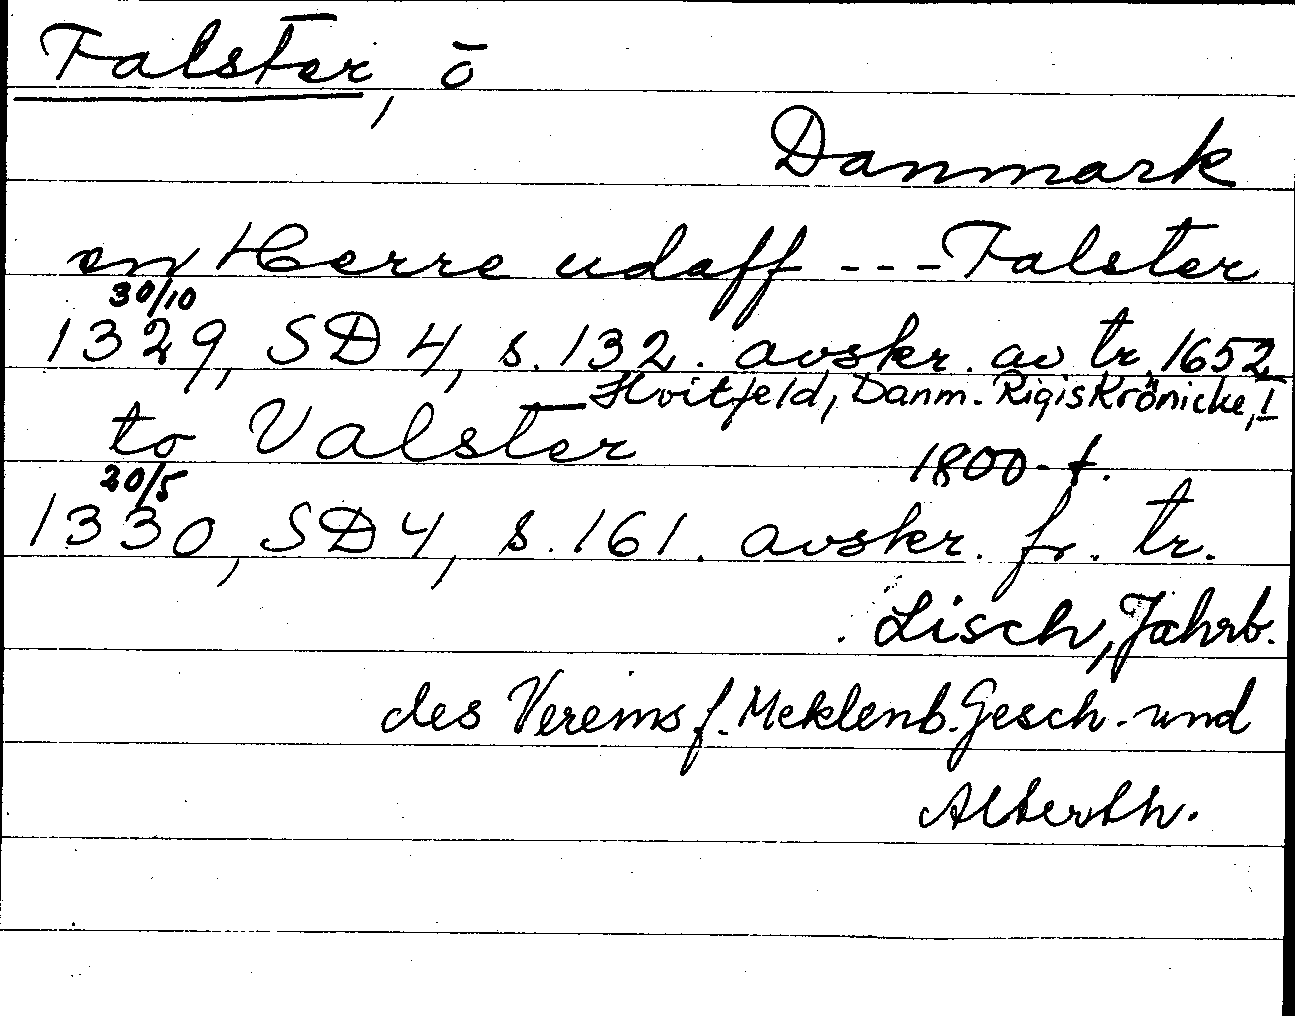 Falster, ö
Danmark
en Herre udaff --- Falster
30/10
1329, SD 4, s. 132. avskr. av tr. 1652
Hvitfeld, Danm. Rigis Krönicke, I
to Valster
1800-t.
20/5
1330, SD 4, s. 161. avskr. fr. tr.
Lisch, Jahrb.
des Vereins f. Meklenb. Gesch. und
Alterth.